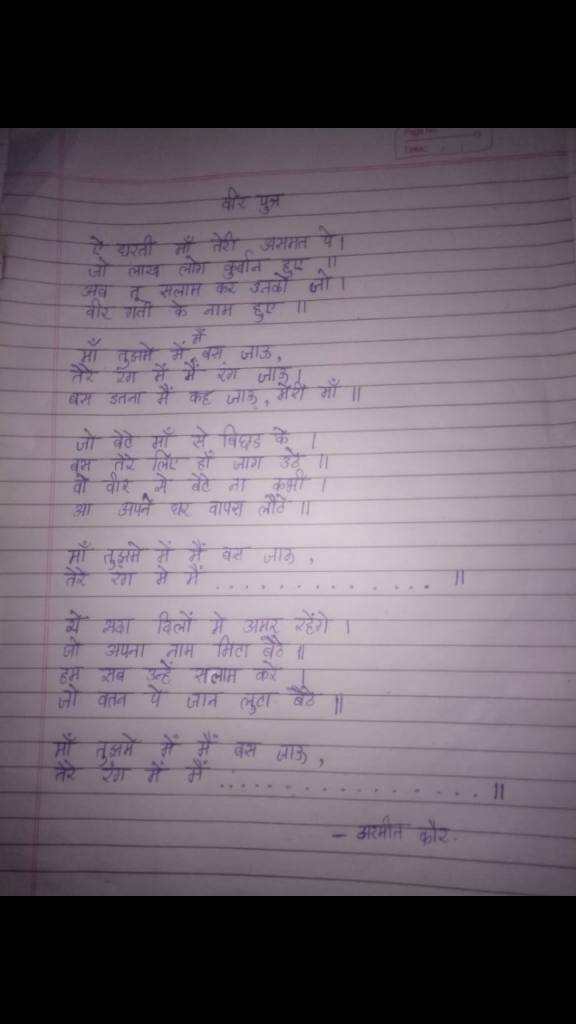 वीर पुत्र
ऐ धरती माँ तेरी असमत पे।
जो लाख लोग कुर्बान हुए ॥
अब तू सलाम कर उनको जो।
वीर गती के नाम हुए ॥
माँ तुझमे में मैं बस जाऊ,
तेरे रंग में मैं रंग जाऊ।
बस इतना मैं कह जाऊ, मेरी माँ ॥
जो बेटे माँ से बिछड के ।
बस तेरे लिए ही जाग उठे ॥
वो वीर से बेटे ना कभी ।
आ अपने घर वापस लौटे ॥
माँ तुझमे में मैं बस जाऊ,
तेरे रंग मे मैं .............. ॥
ये सदा दिलों मे अमर रहेंगे ।
जो अपना नाम मिटा बैठे ॥
हम सब उन्हें सलाम करे |
जो वतन पे जान लुटा बैठे ॥
माँ तुझमे में मैं बस जाऊ,
तेरे रंग में मैं ................. ॥
- कौर.